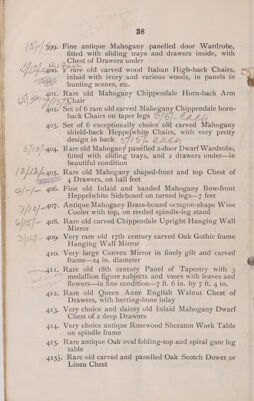 38
399. Fine antique Mahogany panelled door Wardrobe,
fitted with sliding trays and drawers inside, with
Chest of Drawers under
400. 2 rare old carved wood Italian High-back Chairs,
inlaid with ivory and various woods, in panels in
hunting scenes, etc.
401. Rare old Mahogany Chippendale Horn-back Arm
Chair
402. Set of 6 rare old carved Mahogany Chippendale horn-
back Chairs on taper legs
403. Set of 6 exceptionally choice old carved Mahogany
shield-back Heppelwhite Chairs, with very pretty
design in back
5/10/- 404. Rare old Mahogany panelled 2-door Dwarf Wardrobe,
fitted with sliding trays, and 2 drawers under—in
beautiful condition
405. Rare old Mahogany shaped-front and top Chest of
4 Drawers, on ball feet
406. Fine old Inlaid and banded Mahogany Bow-front
Heppelwhite Sideboard on turned legs—7 feet
7/10/- 407. Antique Mahogany Brass-bound octagon-shape Wine
Cooler with top, on reeded spindle-leg stand
6/15/- 408. Rare old carved Chippendale Upright Hanging Wall
Mirror
409. Very rare old 17th century carved Oak Gothic frame
Hanging Wall Mirror
410. Very large Convex Mirror in finely gilt and carved
frame—24 in. diameter
411. Rare old 18th century Panel of Tapestry with 3
medallion figure subjects and vases with leaves and
flowers—in fine condition—7 ft. 6 in. by 7 ft. 4 in.
412. Rare old Queen Anne English Walnut Chest of
Drawers, with herring-bone inlay
413. Very choice and dainty old Inlaid Mahogany Dwarf
Chest of 2 deep Drawers
414. Very choice antique Rosewood Sheraton Work Table
on spindle frame
415. Rare antique Oak oval folding-top and spiral gate leg
table
415½. Rare old carved and panelled Oak Scotch Dower or
Linen Chest